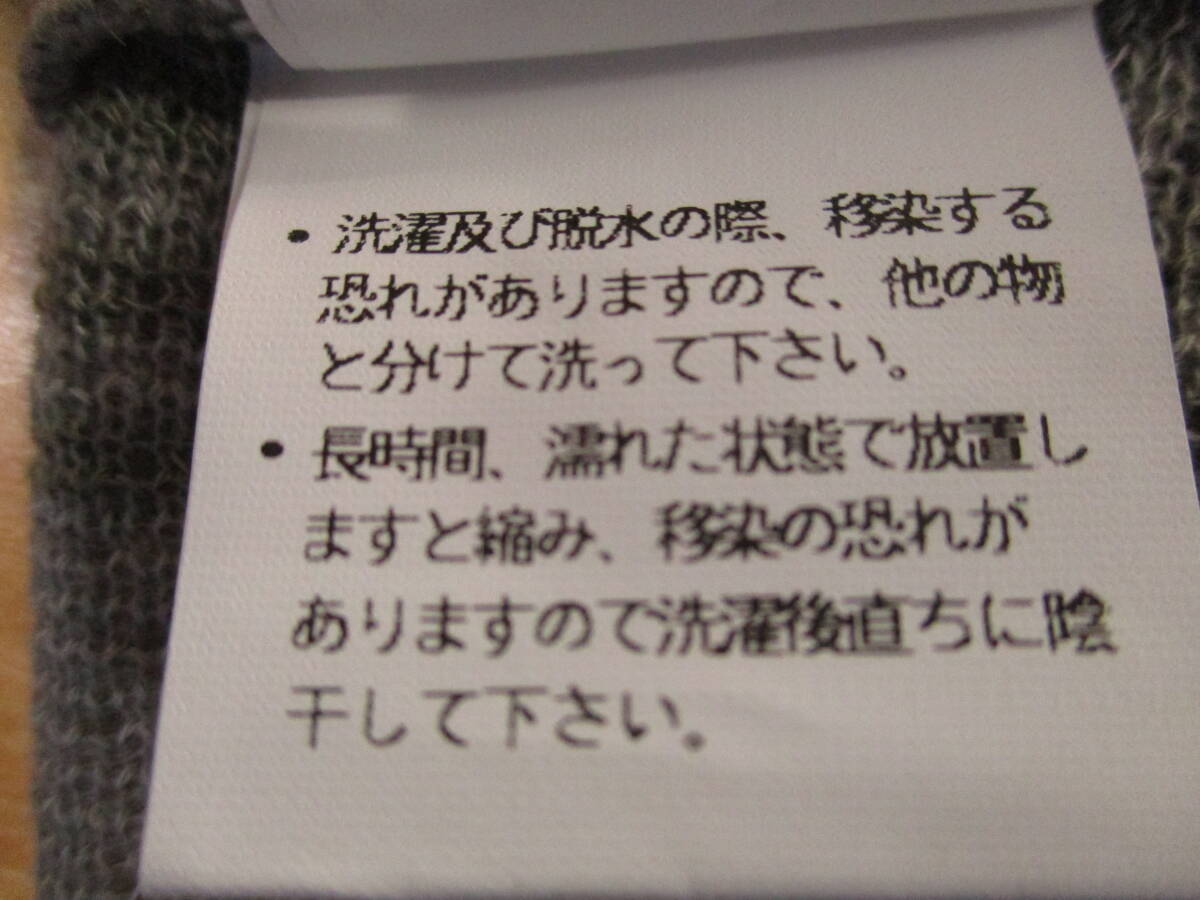 ・洗濯及び脱水の際、移染する
恐れがありますので、他の物
と分けて洗って下さい。
・長時間、濡れた状態で放置し
ますと縮み、移染の恐れが
ありますので洗濯後直ちに陰
干して下さい。